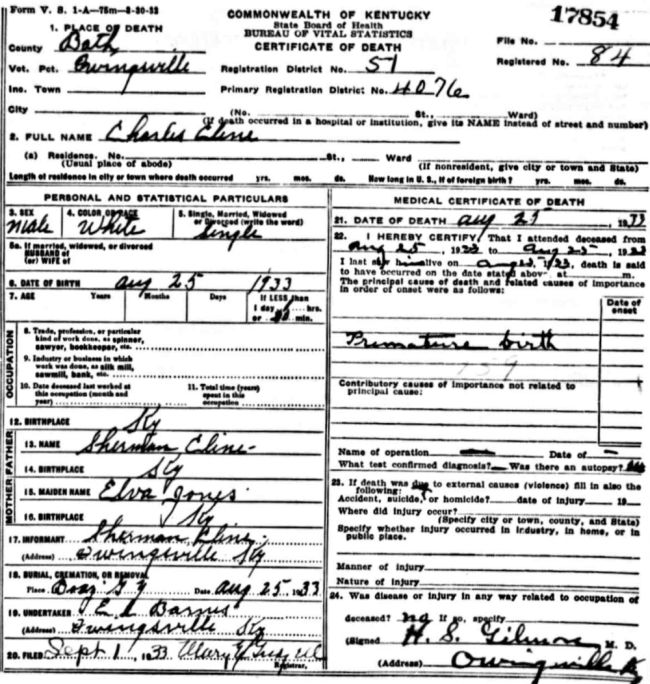 Form V. S. 1-A—75m—8-20-32
COMMONWEALTH OF KENTUCKY
State Board of Health
BUREAU OF VITAL STATISTICS
CERTIFICATE OF DEATH
17854
File No.
Registered No. 84
1. PLACE OF DEATH
County Bath
Vot. Pct. Owingsville
Registration District No. 51
Inc. Town
Primary Registration District No. 4076
City (No. St., Ward)
(If death occurred in a hospital or institution, give its NAME instead of street and number)
2. FULL NAME Charles Cline
(a) Residence. No. St., Ward
(Usual place of abode) (If nonresident, give city or town and State)
Length of residence in city or town where death occurred yrs. mos. ds. How long in U. S., if of foreign birth? yrs. mos. ds.
PERSONAL AND STATISTICAL PARTICULARS
3. SEX 4. COLOR OR RACE 5. Single, Married, Widowed
or Divorced (write the word)
Male White Single
5a. If married, widowed, or divorced
HUSBAND of
(or) WIFE of
6. DATE OF BIRTH Aug 25 1933
7. AGE Years Months Days If LESS than
1 day hrs.
or min.
OCCUPATION
8. Trade, profession, or particular
kind of work done, as spinner,
sawyer, bookkeeper, etc.
9. Industry or business in which
work was done, as silk mill,
sawmill, bank, etc.
10. Date deceased last worked at
this occupation (month and
year)
11. Total time (years)
spent in this
occupation
12. BIRTHPLACE Ky
FATHER
13. NAME Sherman Cline
14. BIRTHPLACE Ky
MOTHER
15. MAIDEN NAME Elva Jones
16. BIRTHPLACE Ky
17. INFORMANT Sherman Cline
(Address) Owingsville Ky
18. BURIAL, CREMATION, OR REMOVAL
Place Date Aug 25 1933
19. UNDERTAKER E L Barnes
(Address) Owingsville Ky
20. FILED Sept 1, 1933 Mary
Registrar.
MEDICAL CERTIFICATE OF DEATH
21. DATE OF DEATH Aug 25, 1933
22. I HEREBY CERTIFY, That I attended deceased from
Aug 25, 1933 to Aug 25, 1933
I last saw him alive on Aug 25, 1933, death is said
to have occurred on the date stated above at m.
The principal cause of death and related causes of importance
in order of onset were as follows:
Date of
onset
Premature birth
159
Contributory causes of importance not related to
principal cause:
Name of operation Date of
What test confirmed diagnosis? Was there an autopsy?
23. If death was due to external causes (violence) fill in also the
following:
Accident, suicide, or homicide? date of injury 19
Where did injury occur?
(Specify city or town, county, and State)
Specify whether injury occurred in industry, in home, or in
public place.
Manner of injury
Nature of injury
24. Was disease or injury in any way related to occupation of
deceased? no If so, specify
(Signed H. S. Gilmore M. D.
(Address) Owingsville Ky